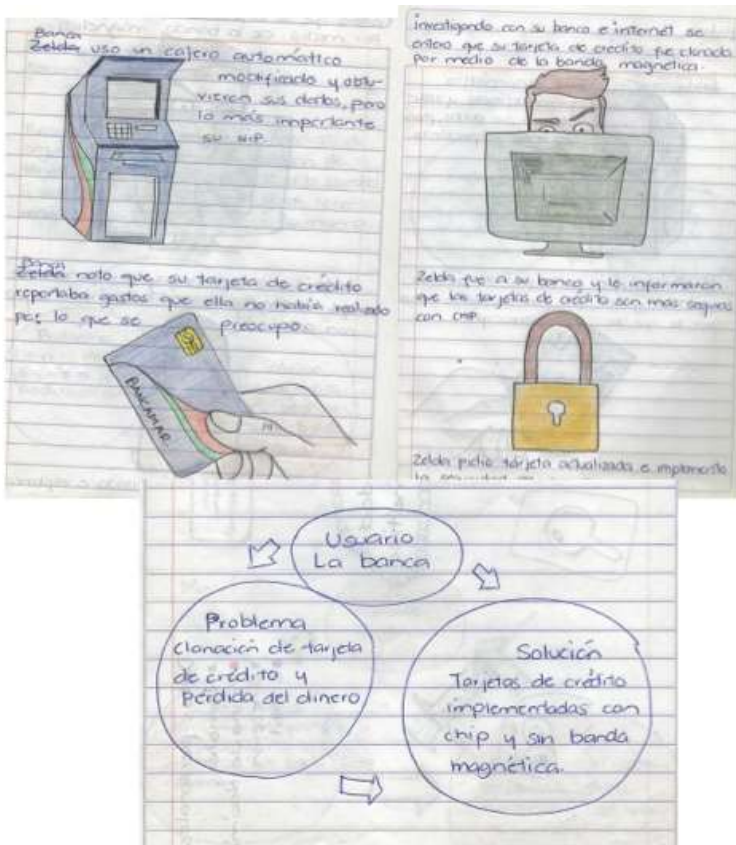 Banca
Zelda uso un cajero automático
modificado y obtu-
vieron sus datos, pero
lo más importante
su NIP.
Banca
Zelda noto que su tarjeta de crédito
reportaba gastos que ella no había realizado
por lo que se preocupo.
BANCAMAR
investigando con su banco e internet se
entero que su tarjeta de crédito fue clonada
por medio de la banda magnética.
Zelda fue a su banco y le informaron
que las tarjetas de crédito son mas seguras
con chip.
Zelda pidio tarjeta actualizada e implemento
la seguridad
Usuario
La banca
Problema
Clonación de tarjeta
de crédito y
Pérdida del dinero
Solución
Tarjetas de crédito
implementadas con
chip y sin banda
magnética.